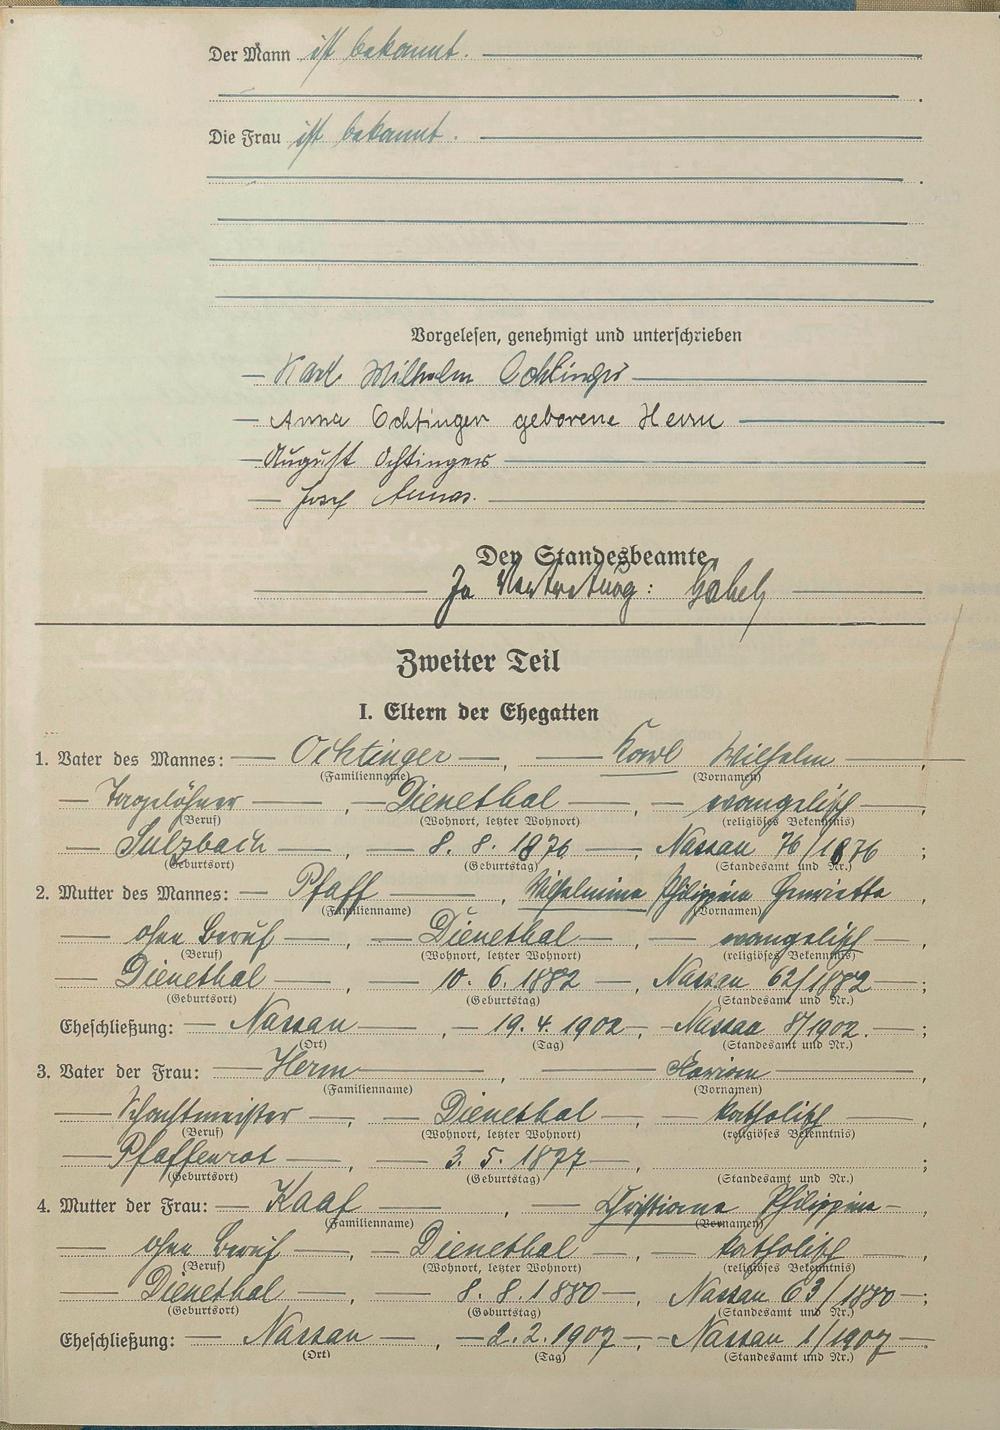 Der Mann ist bekannt.
Die Frau ist bekannt.
Vorgelesen, genehmigt und unterschrieben
Karl Wilhelm Ochtinger
Anna Ochtinger geborene Herm
August Ochtinger
Josef
Der Standesbeamte
In Vertretung: Gabel
Zweiter Teil
I. Eltern der Ehegatten
1. Vater des Mannes: Ochtinger, Karl Wilhelm,
(Familienname) (Vornamen)
Tagelöhner, Dienethal, evangelisch,
(Beruf) (Wohnort, letzter Wohnort) (religiöses Bekenntnis)
Sulzbach, 8. 8. 1876, Nassau 76/1876;
(Geburtsort) (Geburtstag) (Standesamt und Nr.)
2. Mutter des Mannes: Pfaff, Wilhelmine Philippine Henriette,
(Familienname) (Vornamen)
ohne Beruf, Dienethal, evangelisch,
(Beruf) (Wohnort, letzter Wohnort) (religiöses Bekenntnis)
Dienethal, 10. 6. 1882, Nassau 62/1882;
(Geburtsort) (Geburtstag) (Standesamt und Nr.)
Eheschließung: Nassau, 19. 4. 1902, Nassau 8/1902.;
(Ort) (Tag) (Standesamt und Nr.)
3. Vater der Frau: Herm,
(Familienname) (Vornamen)
Schachtmeister, Dienethal, katholisch,
(Beruf) (Wohnort, letzter Wohnort) (religiöses Bekenntnis)
Pfaffenrot, 3. 5. 1877,;
(Geburtsort) (Geburtstag) (Standesamt und Nr.)
4. Mutter der Frau: Kaaf, Christiane Philippine,
(Familienname) (Vornamen)
ohne Beruf, Dienethal, katholisch,
(Beruf) (Wohnort, letzter Wohnort) (religiöses Bekenntnis)
Dienethal, 8. 8. 1880, Nassau 63/1880;
(Geburtsort) (Geburtstag) (Standesamt und Nr.)
Eheschließung: Nassau, 2. 2. 1907, Nassau 1/1907;
(Ort) (Tag) (Standesamt und Nr.)